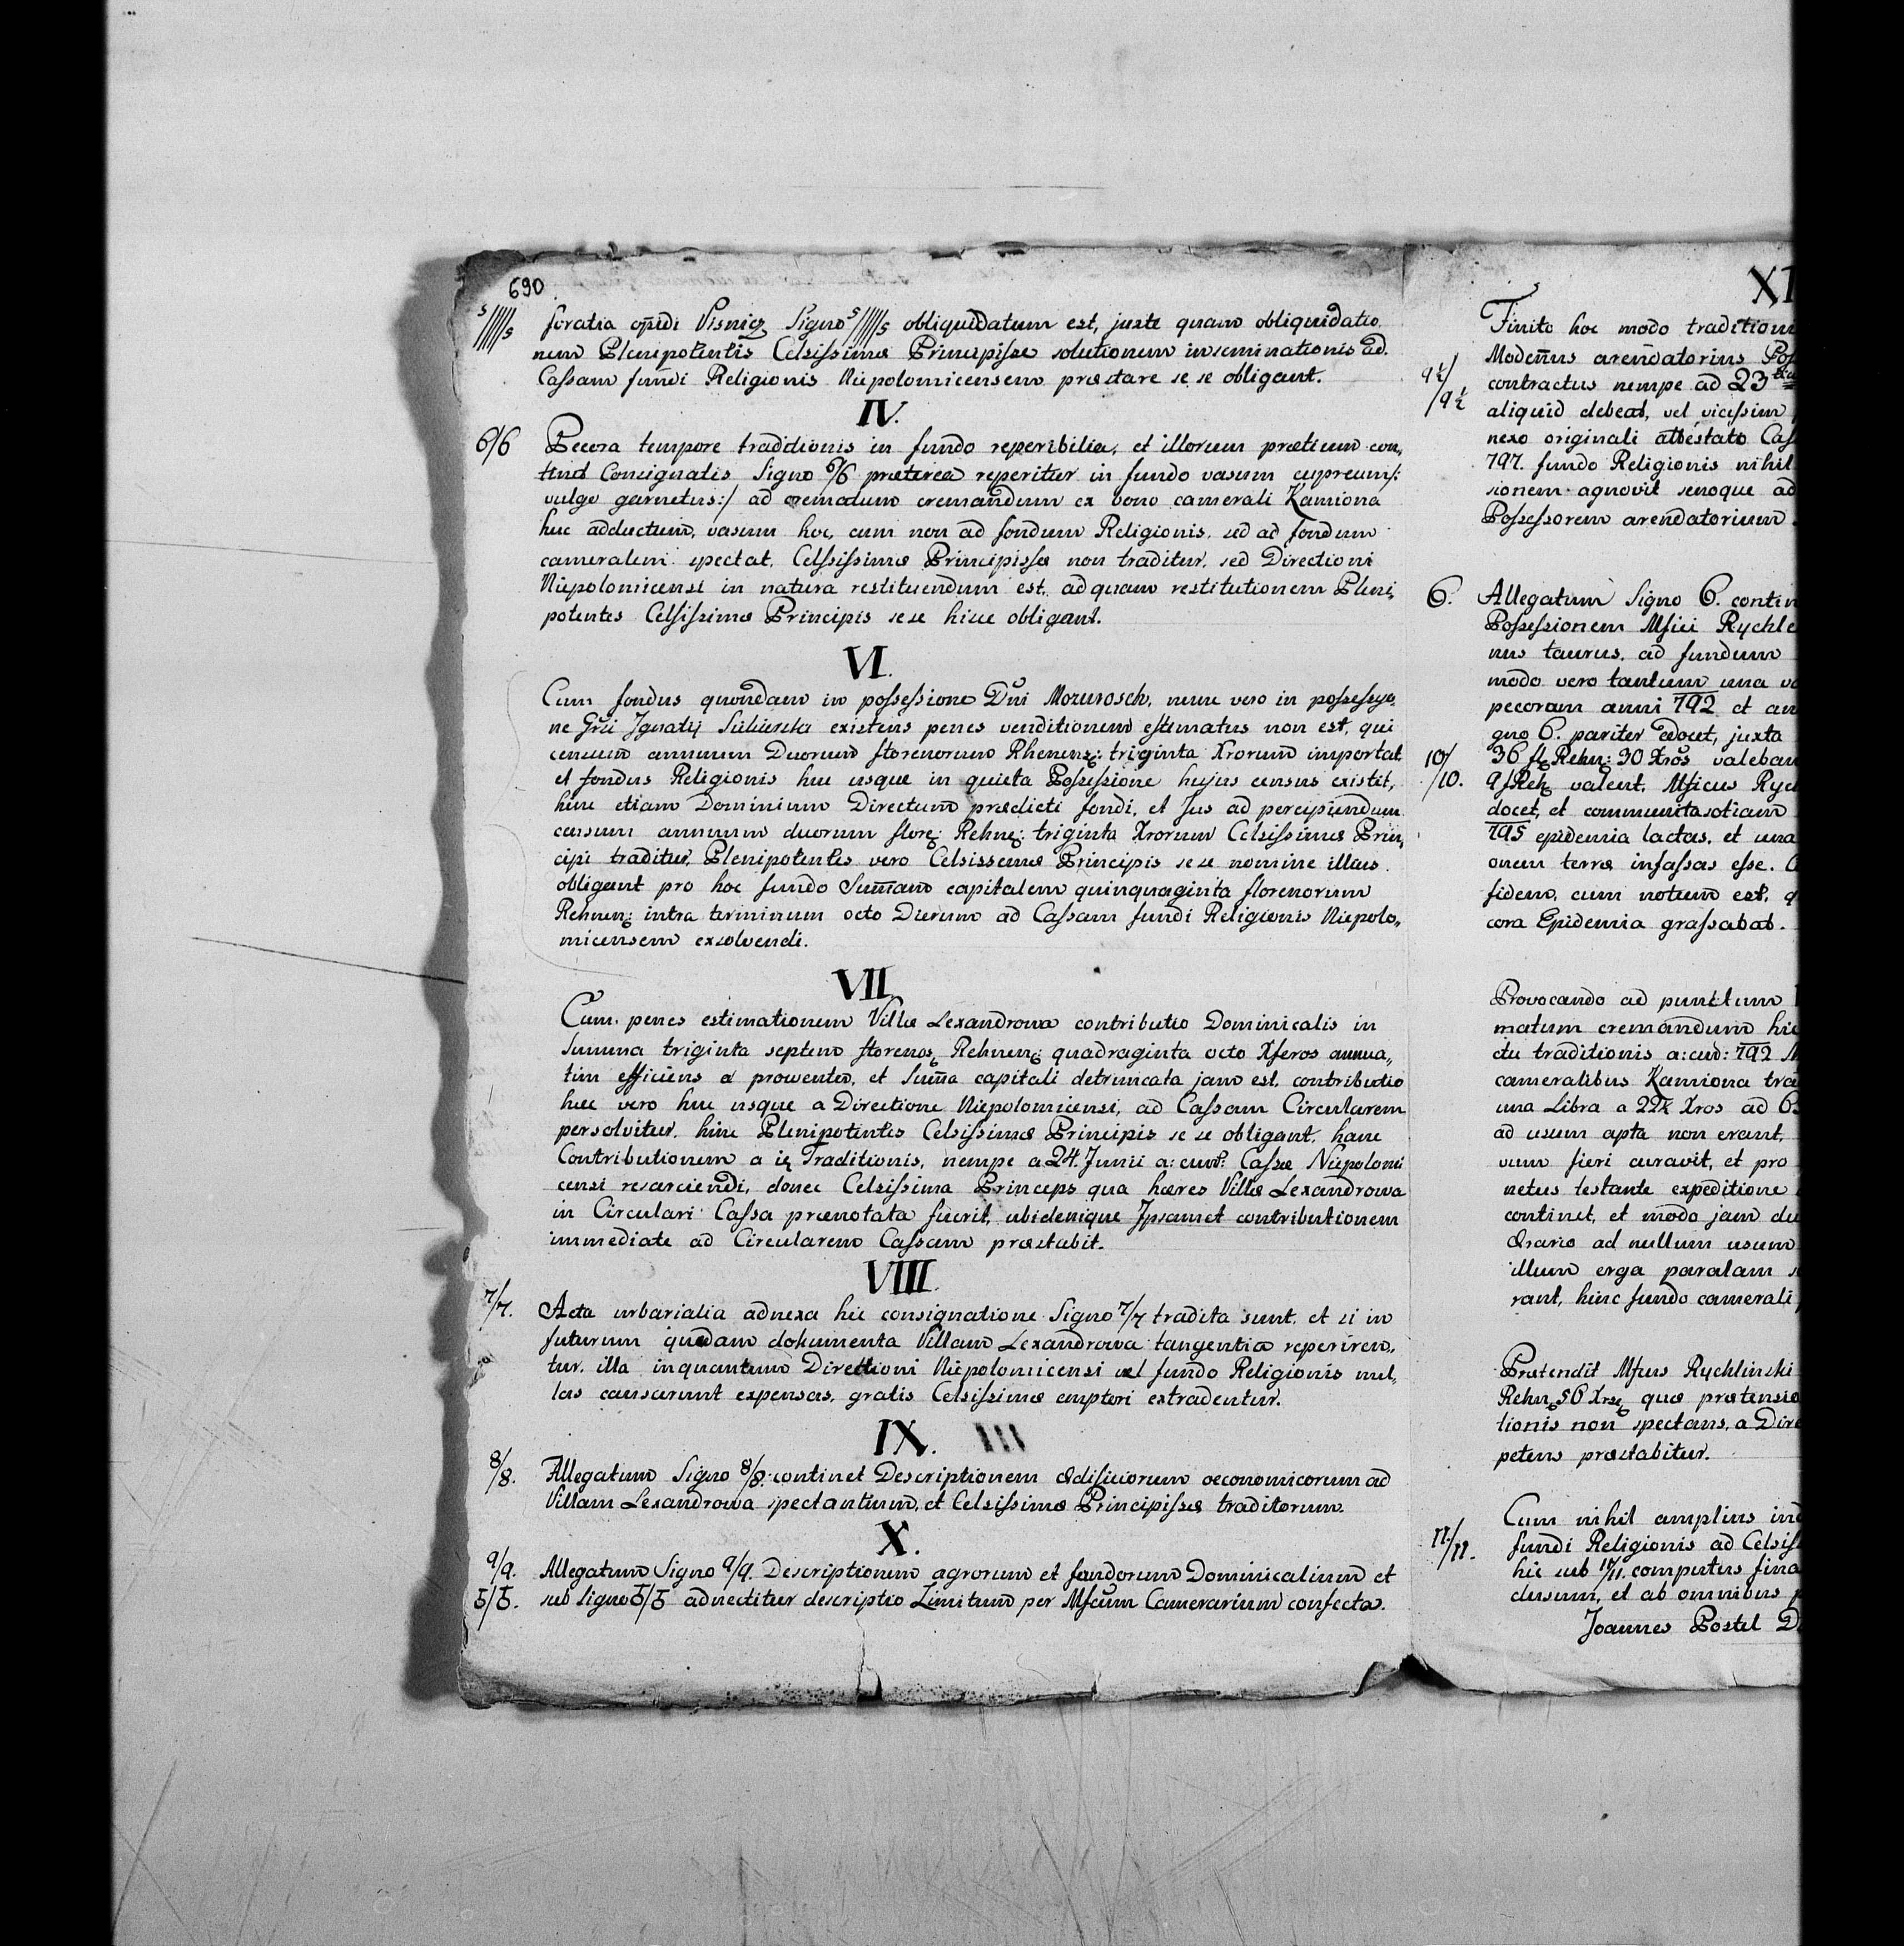 690
5/////5 foratia opidi Visnicz Signo 5/////5 obliquidatum est, juxte quam obliquidatio
nem Plenipotentis Celsissimæ Principissæ solutionem inseminationis ad
Cassam fundi Religionis Niepolomicensem præstare se se obligant.
IV.
6/6 Pecora tempore traditionis in fundo reperibilia, et illorum prætium con„
tinet Consignatis Signo 6/6 præterea reperitur in fundo vasum cupreum/:
vulgo garnetus:/ ad crematum cremandum ex bono camerali Kamiona
huc adductum, vasum hoc, cum non ad fondum Religionis, sed ad fondum
cameralem spectat, Celssissimæ Principissæ non traditur, sed Directioni
Niepolomicensi in natura restituendum est, ad quam restitutionem Pleni„
potentes Celsissimæ Principis sese hisce obligant.
VI.
Cum fondus quondam in possessione Dni Mozurosch, nunc vero in possessyo„
ne Grii Jgnatij existens penes venditionem estimatus non est, qui
censum annuum Duorum florenorum Rhenens: triginta Xrorum importat
et fondus Religionis huc usque in quieta Possessione hujus census existit,
hinc etiam Dominium Directum prædicti fondi, et Jus ad percipiendum
censum annuum duorum flore: Rehne: triginta Xrorum Celsissimæ Prin„
cipi traditur, Plenipotentes vero Celsissemæ Principis sese nomine illius
obligant pro hoc fundo Sumam capitalem quinquaginta florenorum
Rehnen: intra terminum octo Dierum ad Cassam fundi Religionis Niepolo„
micensem exsolvendi.
VII
Cum penes estimationem Villæ Lexandrowa contributio Dominicalis in
Summa triginta septem florenos Rehnen: quadraginta octo Xferos annua„
tim efficiens a prowentes, et Suma capitali detruncata jam est, contributio
hæc vero huc usque a Directione Niepolomicensi, ad Cassam Circularem
persolvitur, hinc Plenipotentis Celsissimæ Principis se se obligant, hanc
Contributionem a Traditionis, nempe a 24. Junii a: curr: Cassæ Niepolomi
censi resarciendi, donec Celsissima Princeps qua hæres Villæ Lexandrowa
in Circulari Cassa prænotata fuerit, ubi denique Jpsamet contributionem
immediate ad Circularem Cassam præstabit.
VIII.
7/7. Acta urbarialia adnexa hic consignatione Signo 7/7 tradita sunt, et si in
futurum quædam dokumenta Villam Lexandrowa tangentia reperiren„
tur, illa inquantum Directioni Niepolomicensi vel fundo Religionis nul„
las causarunt expensas, gratis Celsissimæ emptori extradentur.
IX.
8/8. Allegatum Signo 8/8. continet Descriptionem ædificiorum oeconomicorum ad
Villam Lexandrowa spectantium, et Celsissimæ Principissæ traditorum.
X.
9/9. Allegatum Signo 9/9. Descriptionem agrorum et fundorum Dominicalium et
5/5. sub Signo 5/5 adnectitur descriptio Limitum per Mfcum Camerarium confecta.
XI
Finito hoc modo traditioni
Modernus arendatorius Pos
9½/9½ contractus nempe ad 23
aliquid debeat, vel vicissim
nexo originali attestato Cas
797. fundo Religionis nihil
sionem agnovit senoque ad
Possessorem arendatorium
6. Allegatum Signo 6. contin
Possessionem Mfici Rychle
nus taurus, ad fundum
modo vero tantum una va
pecoram anni 792 et an
gno 6. pariter edocet, juxta
10/10. 36 fl Rehn: 30 Xros valeban
9 fl Reh valent, Mficus Rych
docet, et communitas otiam
795 epidemia lactas, et una
onem terræ infassas esse.
fidem, cum notum est, q
cora Epidemia grassabat.
Provocando ad punctum
matum cremandum hic
ctu traditionis a: curr: 792
cameralibus Kamiona tra
una Libra a 22½ Xros ad 6
ad usum apta non erant,
vum fieri curavit, et pro
netus testante expeditione
continet, et modo jam du
ærario ad nullum usum
illum erga paratam
rant, hinc fundo camerali
Prætendit Mfcus Rychlinski
Rehn 56 Xrs, quæ prætensio
tionis non spectans, a Dire
petens præstabitur.
Cum nihil amplius
11/11. fundi Religionis ad Celsiss
hic sub 11/11. computus fina
clusum, et ab omnibus
Joannes Postel D